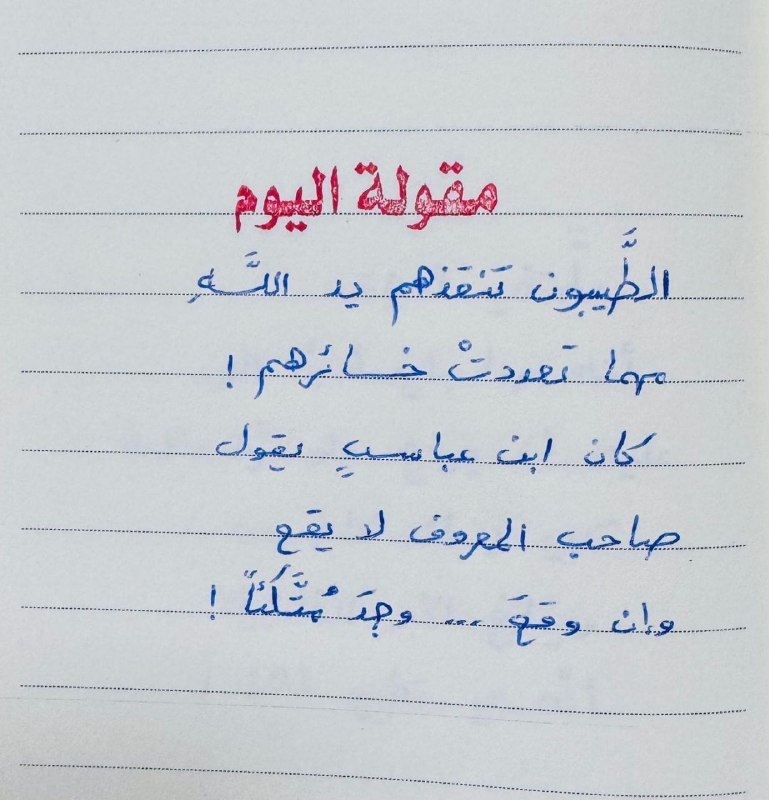 مقولة اليوم
الطَّيبون تنقذهم يد اللَّهِ
مهما تعددتْ خسائرهم !
كان ابن عباسٍ يقول
صاحب المعروف لا يقع
وإن وقعَ ... وجدَ مُتَّكَئاً !